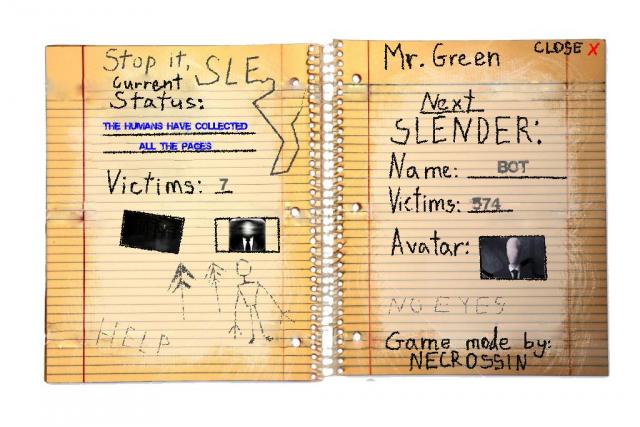 Stop it, SLE
Current
Status:
THE HUMANS HAVE COLLECTED
ALL THE PAGES
Victims: 7
HELP
Mr. Green
CLOSE X
Next
SLENDER:
Name: BOT
Victims: 574
Avatar:
NO EYES
Game mode by:
NECROSSIN